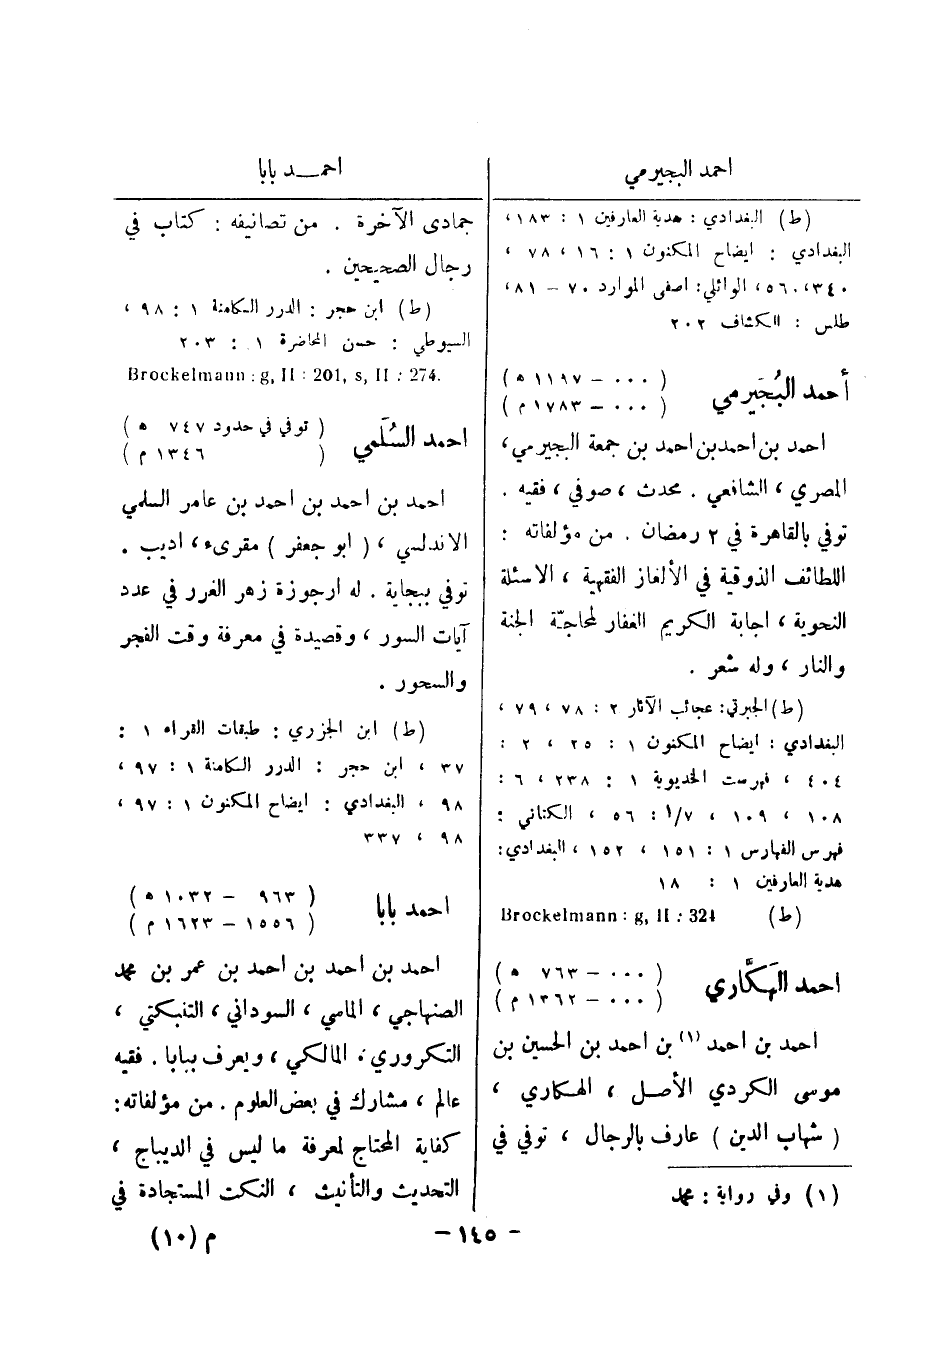 احمد البجيرمي
(ط) البغدادي : هدية العارفين ١ : ١٨٣،
البغدادي : ايضاح المكنون ١ : ١٦ ، ٧٨ ،
٣٤٠، ٥٦٠، الوائلي: اصفى الموارد ٧٠ – ٨١،
طلس : الكشاف ٢٠٢
أحمد البُجَيرمي
( ٠٠٠ – ١١٩٧ ه )
( ٠٠٠ – ١٧٨٣ م )
احمد بن احمدبن احمد بن جمعة البجيرمي ،
المصري ، الشافعي . محدث ، صوفي ، فقيه .
توفي بالقاهرة في ٢ رمضان . من مؤلفاته :
اللطائف الذوقية في الألغاز الفقهية ، الاسئلة
النحوية ، اجابة الكريم الغفار لمحاجّة الجنة
والنار ، وله شعر .
(ط) الجبرتي: عجائب الآثار ٢ : ٧٨ ، ٧٩ ،
البغدادي : ايضاح المكنون ١ : ٢٥ ، ٢ :
٤٠٤ ، فهرست الخديوية ١ : ٢٣٨ ، ٦ :
١٠٨ ، ١٠٩ ، ١/٧ : ٥٦ ، الكتاني :
فهرس الفهارس ١ : ١٥١ ، ١٥٢ ، البغدادي:
هدية العارفين ١ : ١٨
(ط) Brockelmann : g, II : 324
احمد الهَكَّاري
( ٠٠٠ – ٧٦٣ ه )
( ٠٠٠ – ١٣٦٢ م )
احمد بن احمد (١) بن احمد بن الحسين بن
موسى الكردي الأصل ، الهكاري ،
( شهاب الدين ) عارف بالرجال ، توفي في
(١) وفي رواية : محمد
احمد بابا
جمادى الآخرة . من تصانيفه : كتاب في
رجال الصحيحين .
(ط) ابن حجر : الدرر الكامنة ١ : ٩٨ ،
السيوطي : حسن المحاضرة ١ : ٢٠٣
Brockelmann : g, II : 201, s, II : 274.
احمد السُلَمي
( توفي في حدود ٧٤٧ ه )
( ١٣٤٦ م )
احمد بن احمد بن احمد بن عامر السلمي
الاندلسي ، ( ابو جعفر ) مقرىء ، اديب .
توفي ببجاية . له ارجوزة زهر الغرر في عدد
آيات السور ، وقصيدة في معرفة وقت الفجر
والسحور .
(ط) ابن الجزري : طبقات القراء ١ :
٣٧ ، ابن حجر : الدرر الكامنة ١ : ٩٧ ،
٩٨ ، البغدادي : ايضاح المكنون ١ : ٩٧ ،
٩٨ ، ٣٣٧
احمد بابا
( ٩٦٣ – ١٠٣٢ ه )
( ١٥٥٦ – ١٦٢٣ م )
احمد بن احمد بن احمد بن عمر بن محمد
الصنهاجي ، الماسي ، السوداني ، التنبكتي ،
التكروري ، المالكي ، ويعرف ببابا . فقيه
عالم ، مشارك في بعض العلوم . من مؤلفاته:
كفاية المحتاج لمعرفة ما ليس في الديباج ،
التحديث والتأنيث ، النكت المستجادة في
– ١٤٥ –
م (١٠)